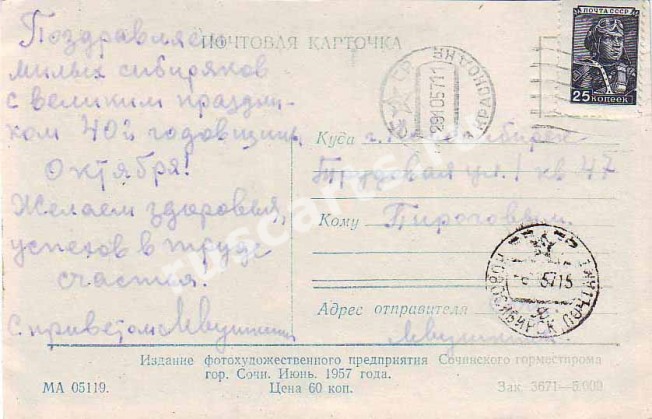 ПОЧТА СССР
25 КОПЕЕК
ПОЧТОВАЯ КАРТОЧКА
Поздравляем
милых сибиряков
с великим праздни-
ком 40й годовщины
Октября!
Желаем здоровья,
успехов в труде
счастья.
С приветом
Куда г. Новосибирск
Трудовая ул. 1 кв 47
Кому Пироговым.
Адрес отправителя
Издание фотохудожественного предприятия Сочинского горместпрома
гор. Сочи. Июнь. 1957 года.
МА 05119.
Цена 60 коп.
Зак. 3671—5.000
НОВОСИБИРСК
ruscards.ru